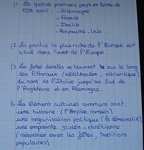 1. Les quatre premiers pays en terme de
PIB sont : - Allemagne
- France
- Italie
- Royaume-Uni
2. La partie la plus riche de l'Europe est
situé dans l'ouest de l'Europe
3. Les fortes densités se trouvent le long
des littoraux (méditerranéen, atlantique)
du nord de l'Italie jusqu'au Sud de
l'Angleterre et en Allemagne
4. Les élément culturels communs sont :
une histoire (l'Empire romain)
une organisation politique (la démocratie)
une empreinte judéo-chrétienne
(calendrier avec les fêtes, traditions
populaires)